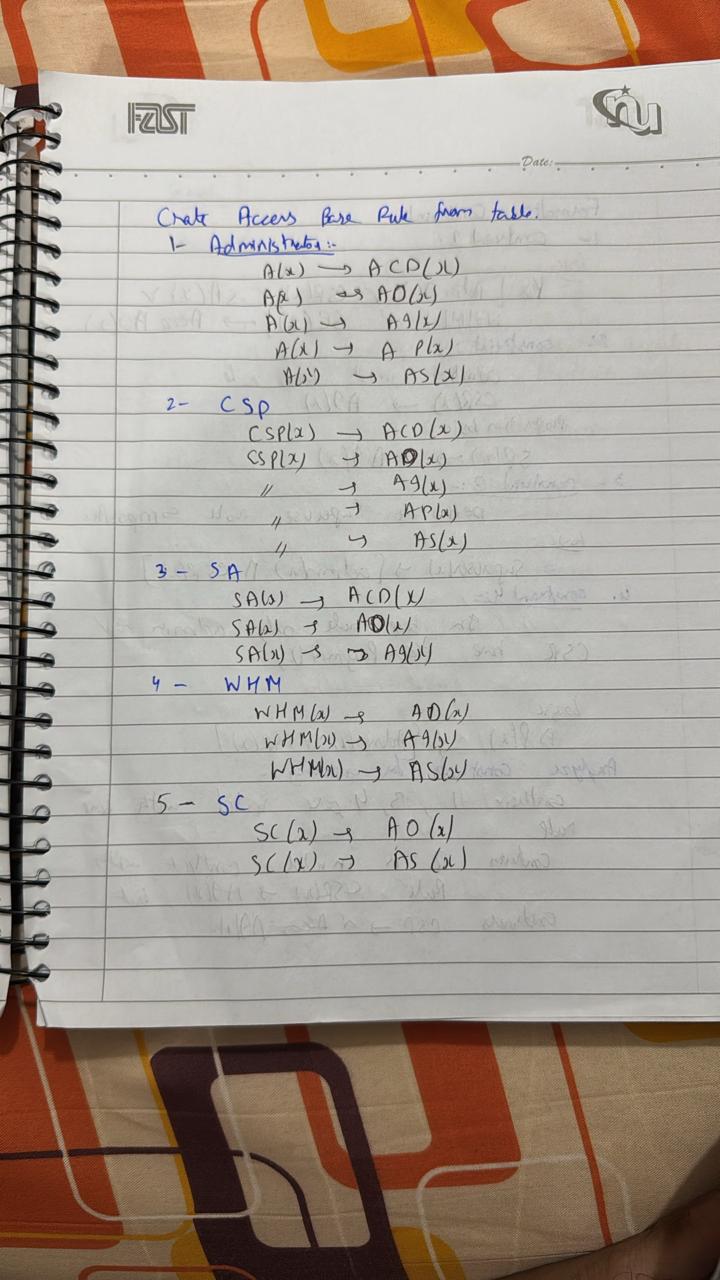 FAST
NU
Date:
Crate Access Base Rule from table.
1- Administrator:-
A(x) → ACD(x)
A(x) → AO(x)
A(x) → AI(x)
A(x) → A P(x)
A(x) → AS(x)
2- CSP
CSP(x) → ACD(x)
CSP(x) → AO(x)
〃 → AI(x)
〃 → AP(x)
〃 → AS(x)
3- SA
SA(x) → ACD(x)
SA(x) → AO(x)
SA(x) → → AI(x)
4- WHM
WHM(x) → AO(x)
WHM(x) → AI(x)
WHM(x) → AS(x)
5- SC
SC(x) → AO(x)
SC(x) → AS(x)